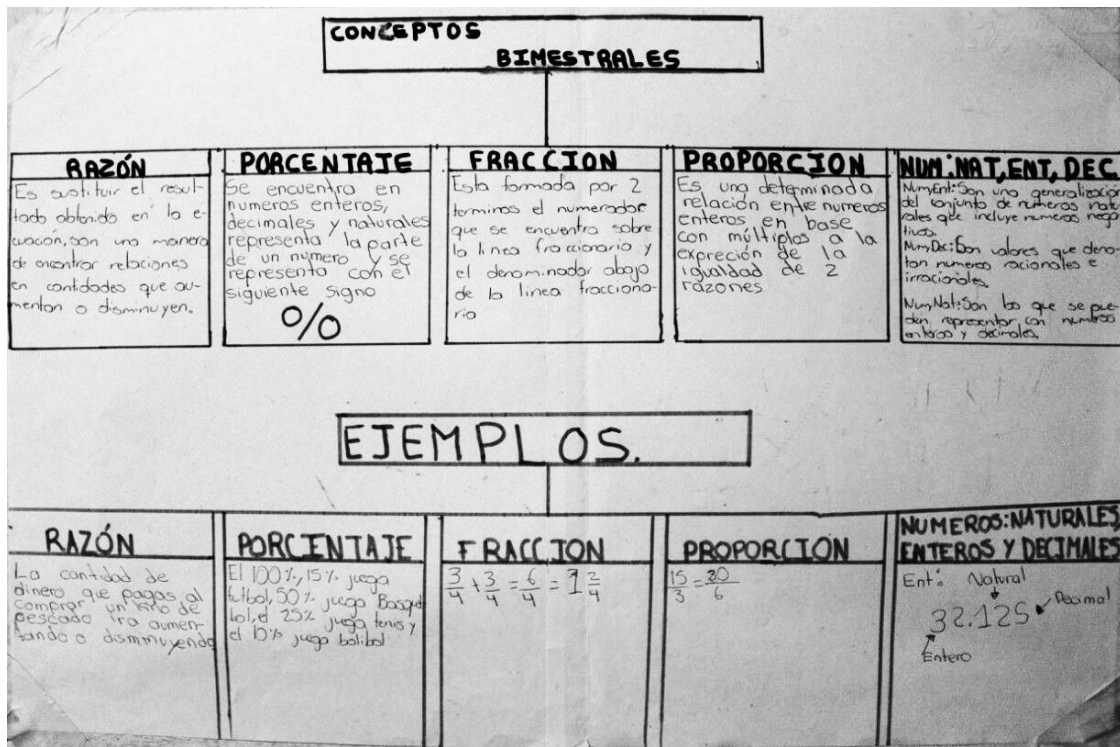 CONCEPTOS
BIMESTRALES
RAZÓN
Es sustituir el resul-
tado obtenido en la e-
cuación, son una manera
de encontrar relaciones
en cantidades que au-
mentan o disminuyen.
PORCENTAJE
Se encuentra en
numeros enteros,
decimales y naturales
representa la parte
de un numero y se
representa con el
siguiente signo
%
FRACCION
Esta formada por 2
terminos el numerador
que se encuentra sobre
la linea fraccionaria y
el denominador abajo
de la linea fracciona-
ria
PROPORCION
Es una determinada
relación entre numeros
enteros en base
con múltiplos a la
expreción de la
igualdad de 2
razones
NUM:NAT,ENT,DEC.
Num,Ent:Son una generalizacion
del conjunto de numeros natu-
rales que incluye numeros nega
tivos.
Num,Dec:Son valores que deno-
tan numeros racionales e
irracionales.
Num,Nat:Son los que se pue-
den representar con numeros
enteros y decimales.
EJEMPLOS.
RAZÓN
La cantidad de
dinero que pagas al
comprar un kilo de
pescado ira aumen-
tando o disminuyendo
PORCENTAJE
El 100%, 15% juega
futbol, 50% juega Basquet
bol, el 25% juega tenis y
el 10% juega bolibol
FRACCION
3/4 + 3/4 = 6/4 = 1 2/4
PROPORCIÓN
15/3 = 30/6
NUMEROS:NATURALES
ENTEROS Y DECIMALES
Ent: Natural
32.125 Decimal
Entero